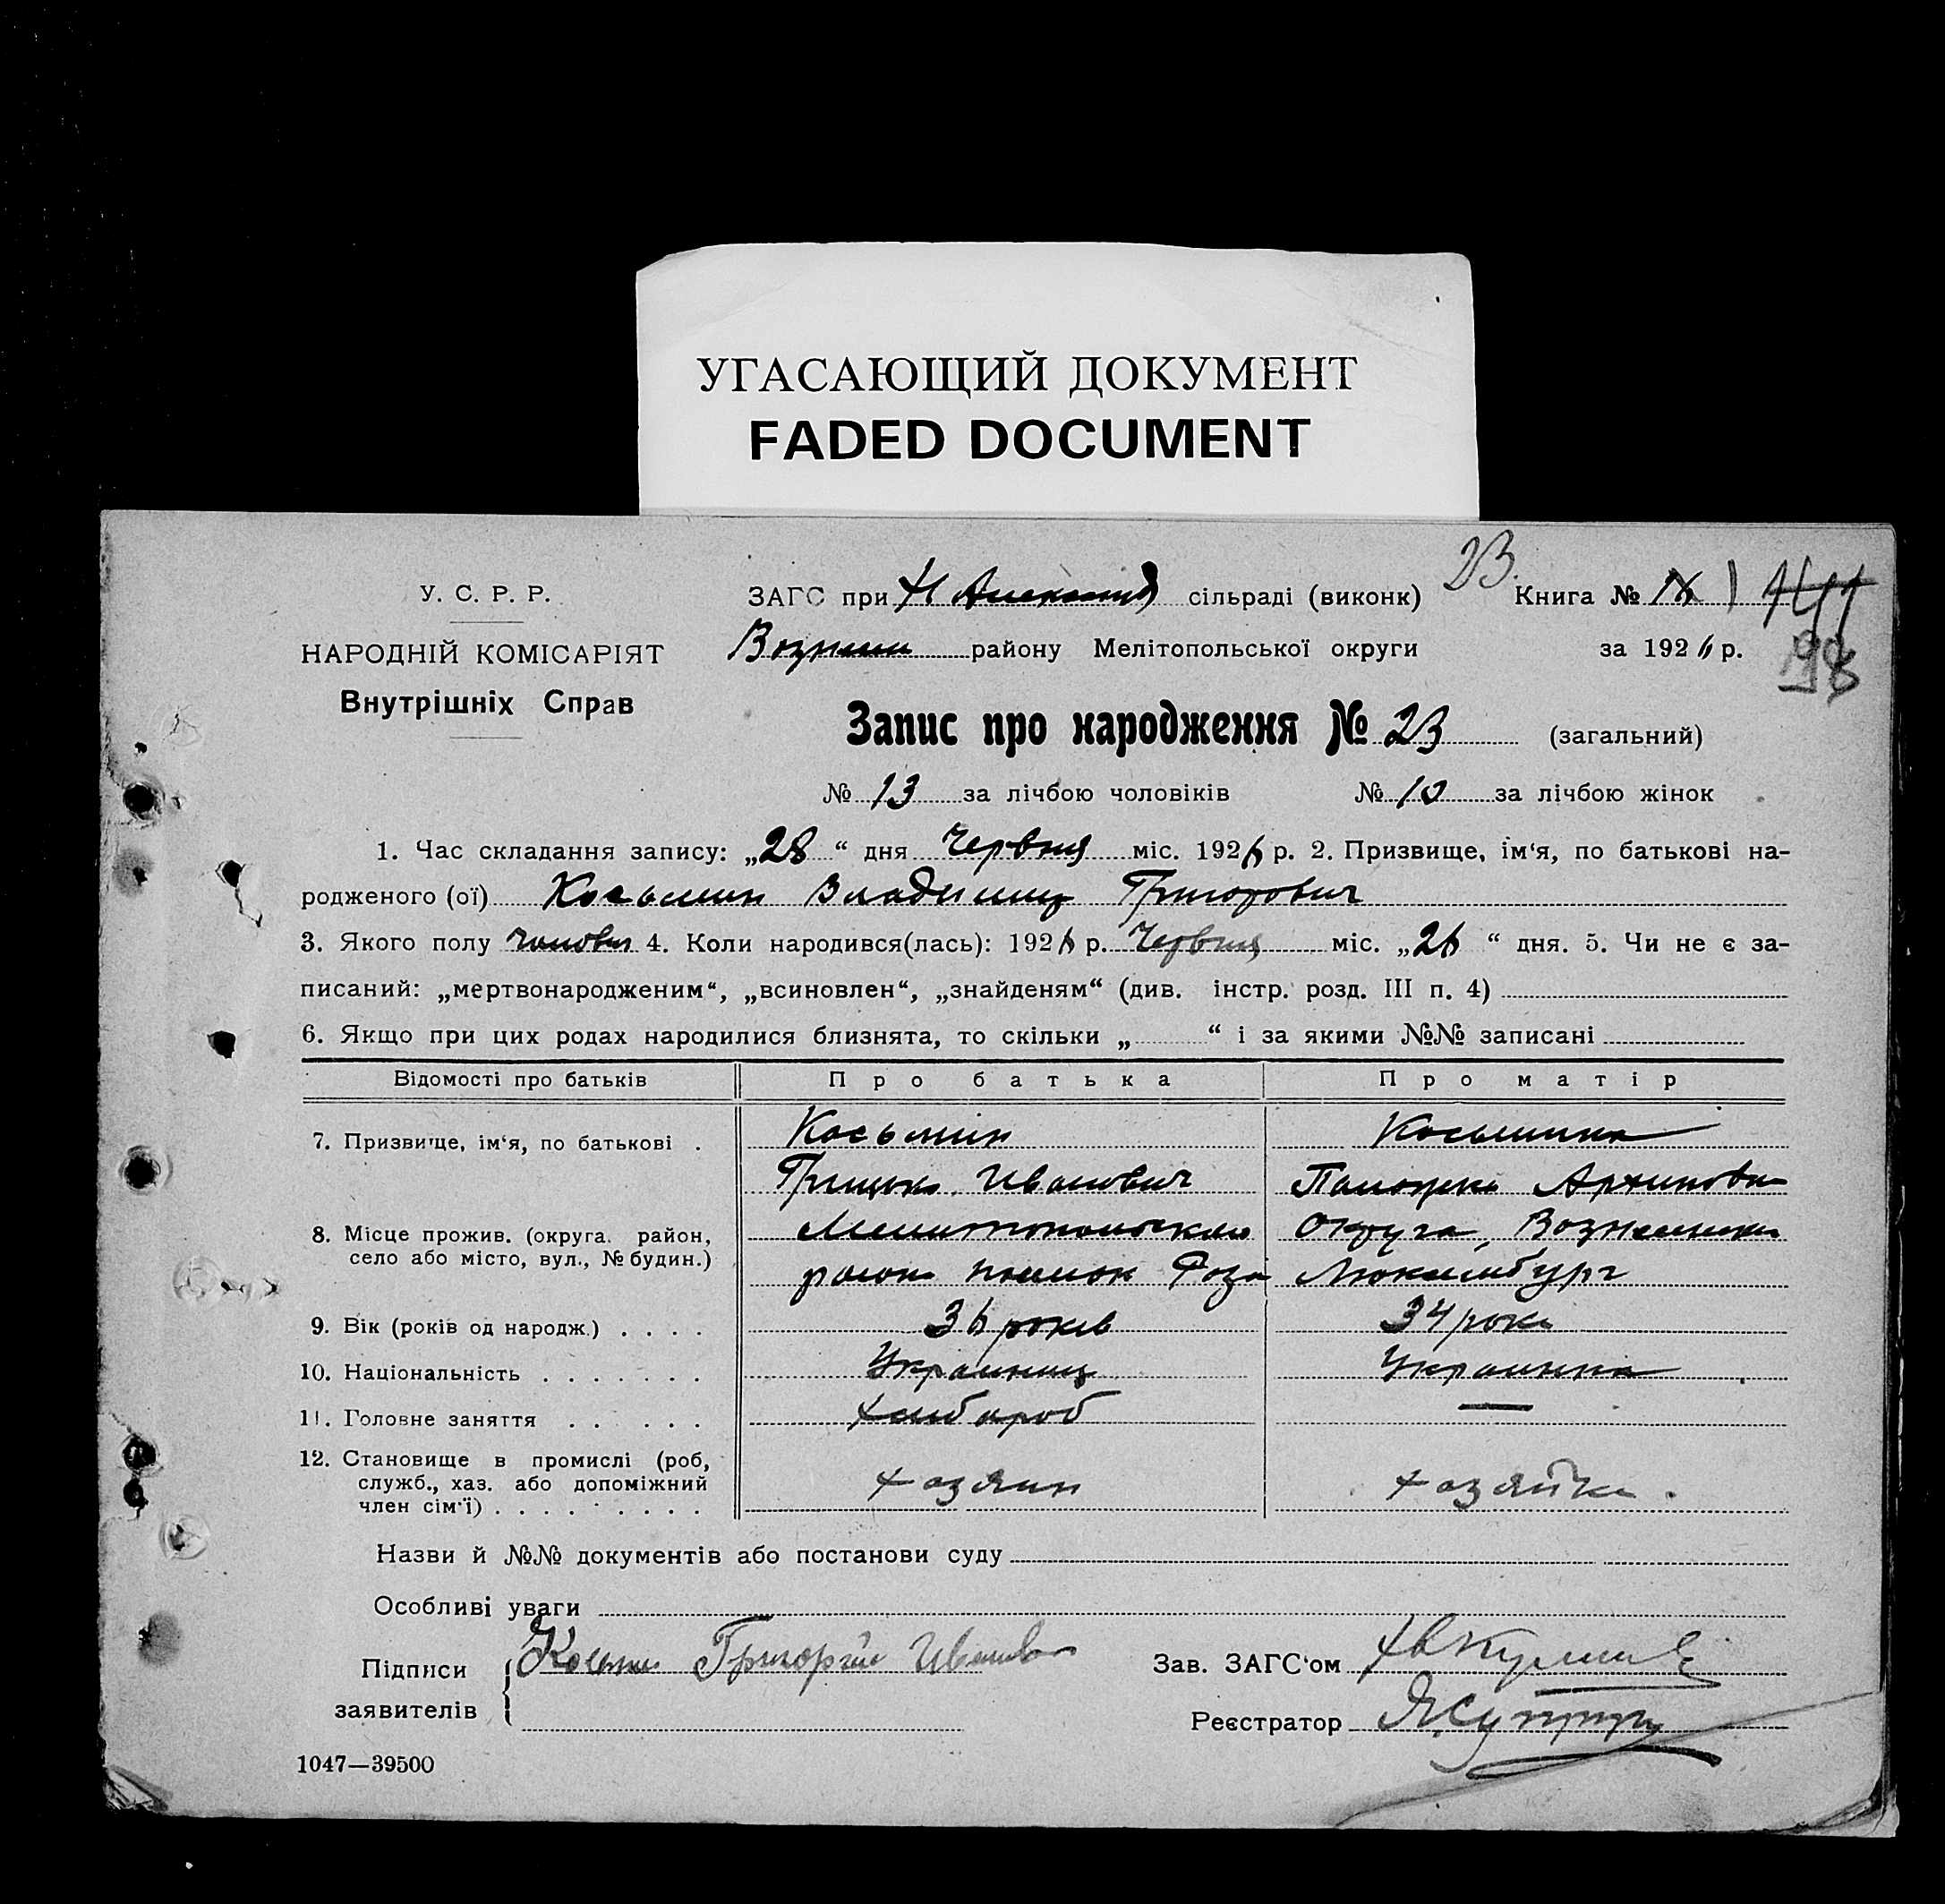 УГАСАЮЩИЙ ДОКУМЕНТ
FADED DOCUMENT
23.
У. С. Р. Р.
НАРОДНІЙ КОМІСАРІЯТ
Внутрішніх Справ
ЗАГС при Н сільраді (виконк) Книга №
району Мелітопольської округи за 1926 р.
98
Запис про народження № 23 (загальний)
№ 13 за лічбою чоловіків № 10 за лічбою жінок
1. Час складання запису: „28“ дня Червня міс. 1926 р. 2. Призвище, ім‘я, по батькові на-
родженого (ої) Косьмин Владимир Григорович
3. Якого полу 4. Коли народився(лась): 1926 р. Червня міс. „26“ дня. 5. Чи не є за-
писаний: „мертвонародженим“, „всиновлен“, „знайденям“ (див. інстр. розд. III п. 4)
6. Якщо при цих родах народилися близнята, то скільки „ “ і за якими №№ записані
Відомості про батьків Про батька Про матір
7. Призвище, ім‘я, по батькові . Косьмин Косьмина
Грицько Иванович Архиповна
8. Місце прожив. (округа. район, Округа,
село або місто, вул., № будин.) Роза Люксембург
9. Вік (років од народж.) . . . . 36 років 34 роки
10. Національність . . . . . . . Украинец Украинка
11. Головне заняття . . . . . . Хлибороб —
12. Становище в промислі (роб,
служб., хаз. або допоміжний Хозяин Хозяйка.
член сім‘ї) . . . . . . . .
Назви й №№ документів або постанови суду
Особливі уваги
Підписи Григорій Зав. ЗАГС‘ом
заявителів
Реєстратор
1047—39500